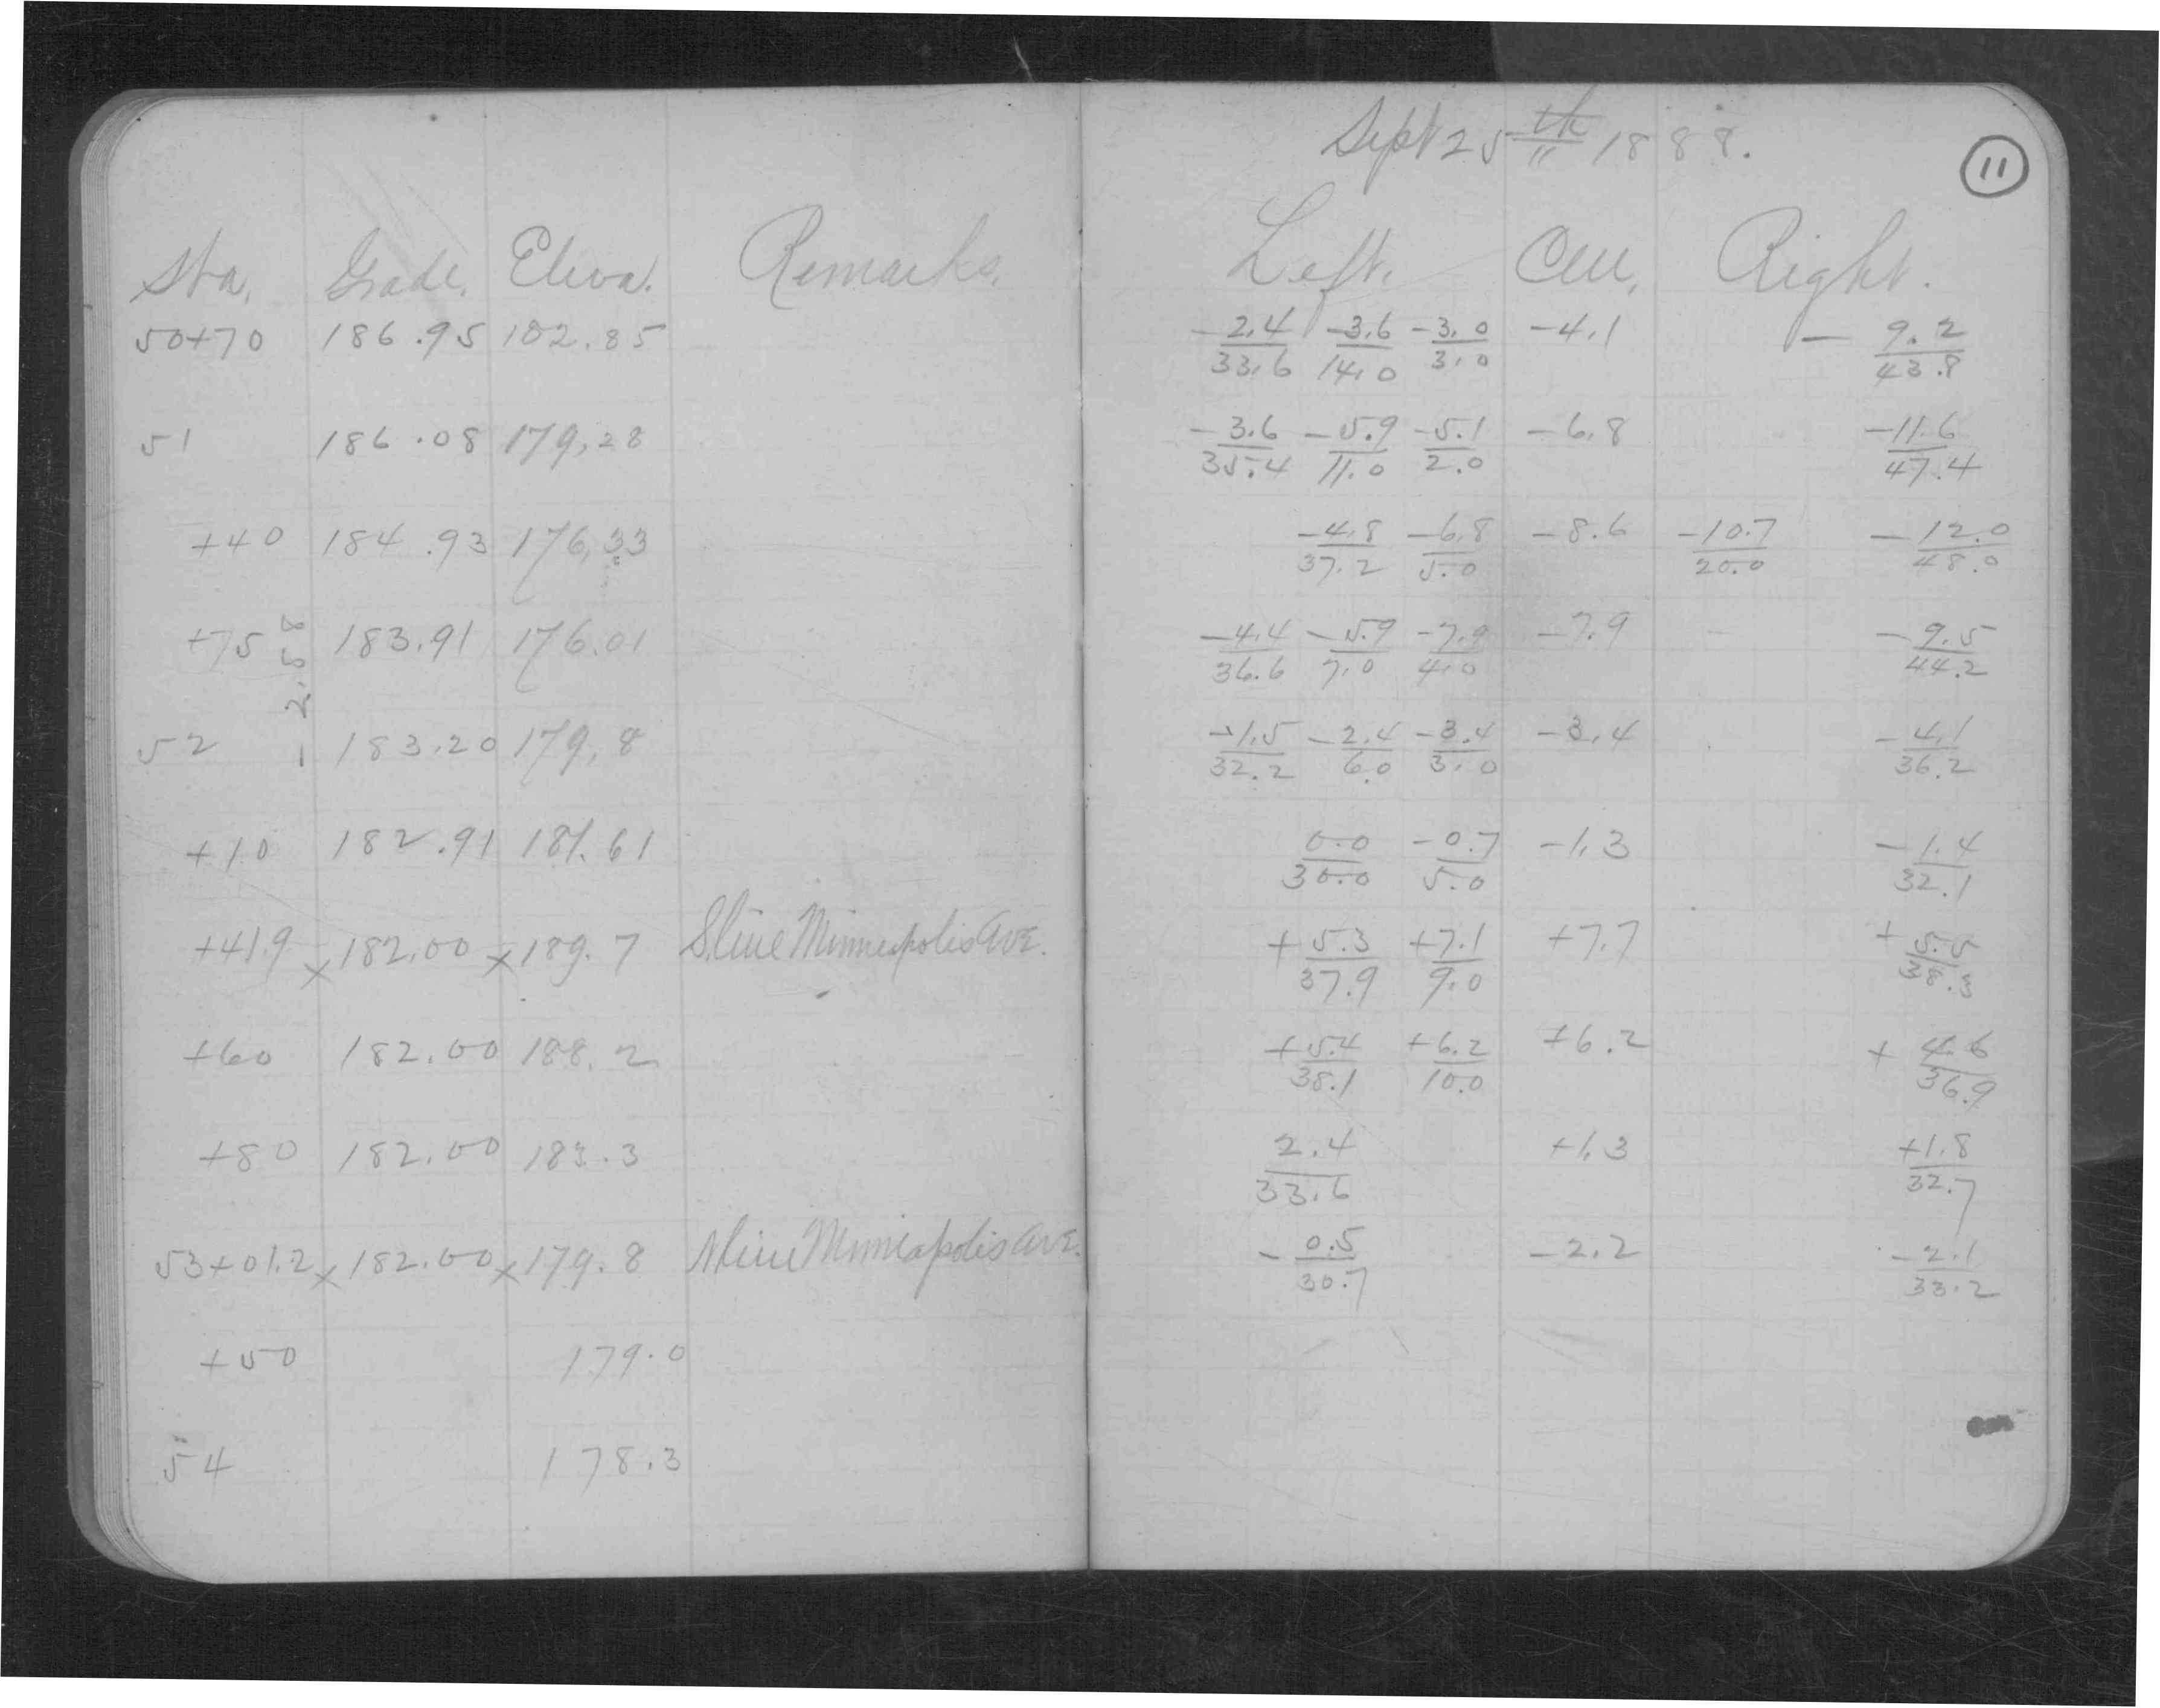 Sept 25th 1888.
11
Sta. Grade. Eleva. Remarks. Left. Cen. Right.
50+70 186.95 182.85 -2.4/33.6 -3.6/14.0 -3.0/3.0 -4.1 -9.2/43.8
51 186.08 179.28 -3.6/35.4 -5.9/11.0 -5.1/2.0 -6.8 -11.6/47.4
+40 184.93 176.33 -4.8/37.2 -6.8/5.0 -8.6 -10.7/20.0 -12.0/48.0
+75 183.91 176.01 -4.4/36.6 -5.9/7.0 -7.9/4.0 -7.9 -9.5/44.2
- 2.88
52 183.20 179.8 -1.5/32.2 -2.4/6.0 -3.4/3.0 -3.4 -4.1/36.2
+10 182.91 181.61 0.0/30.0 -0.7/5.0 -1.3 -1.4/32.1
+41.9 x 182.00 x 189.7 S. line Minneapolis Ave. +5.3/37.9 +7.1/9.0 +7.7 +5.5/38.3
+60 182.00 188.2 +5.4/38.1 +6.2/10.0 +6.2 +4.6/36.9
+80 182.00 183.3 2.4/33.6 +1.3 +1.8/32.7
53+01.2 x 182.00 x 179.8 N line Minneapolis Ave. -0.5/30.7 -2.2 -2.1/33.2
+50 179.0
54 178.3